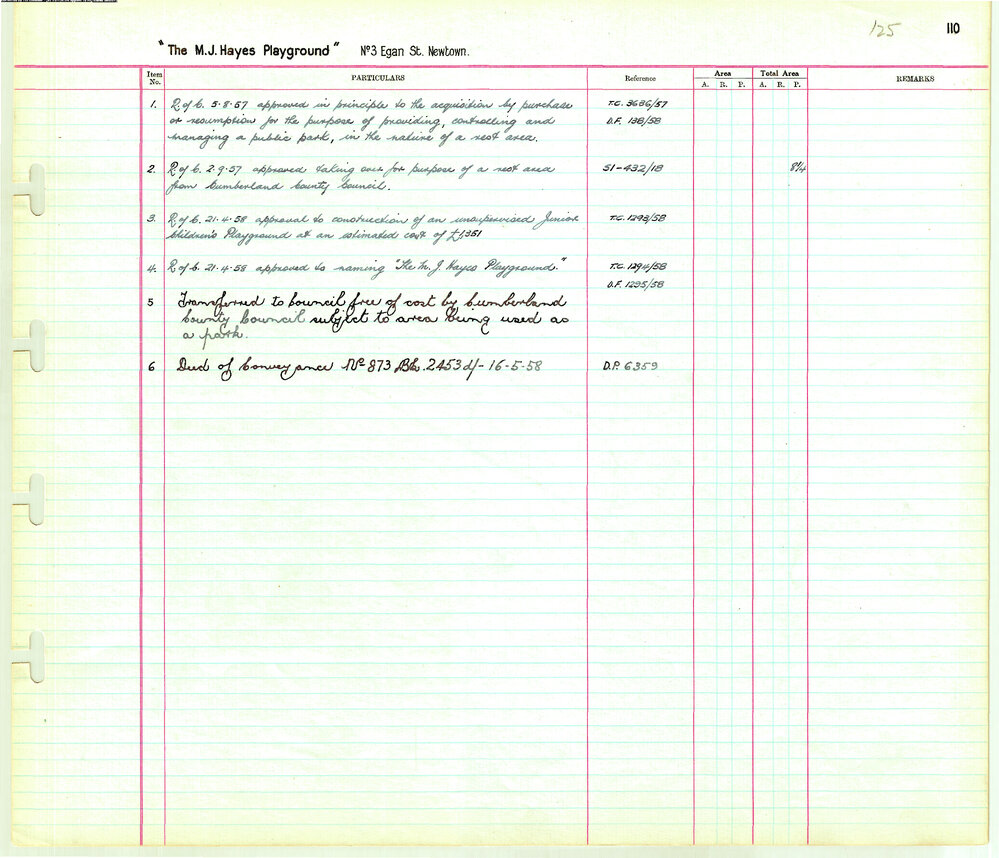 125
110
"The M.J. Hayes Playground" Nº3 Egan St. Newtown.
Item No. PARTICULARS Reference Area Total Area REMARKS
A. R. P. A. R. P.
1. R of C. 5.8.57 approved in principle to the acquisition by purchase T.C. 3636/57
or resumption for the purpose of providing, controlling and D.F. 138/58
managing a public park, in the nature of a rest area.
2. R of C. 2.9.57 approved taking over for purpose of a rest area 51-432/18 8¼
from Cumberland County Council.
3. R of C. 21.4.58 approval to construction of an unsupervised Junior T.C. 1293/58
Children's Playground at an estimated cost of £1,351
4. R of C. 21.4.58 approved to naming "The M. J. Hayes Playground." T.C. 1294/58
D.F. 1295/58
5 Transferred to Council free of cost by Cumberland
County Council subject to area being used as
a park.
6 Deed of Conveyance Nº 873 Bk. 2453 d/- 16-5-58 D.P. 6359